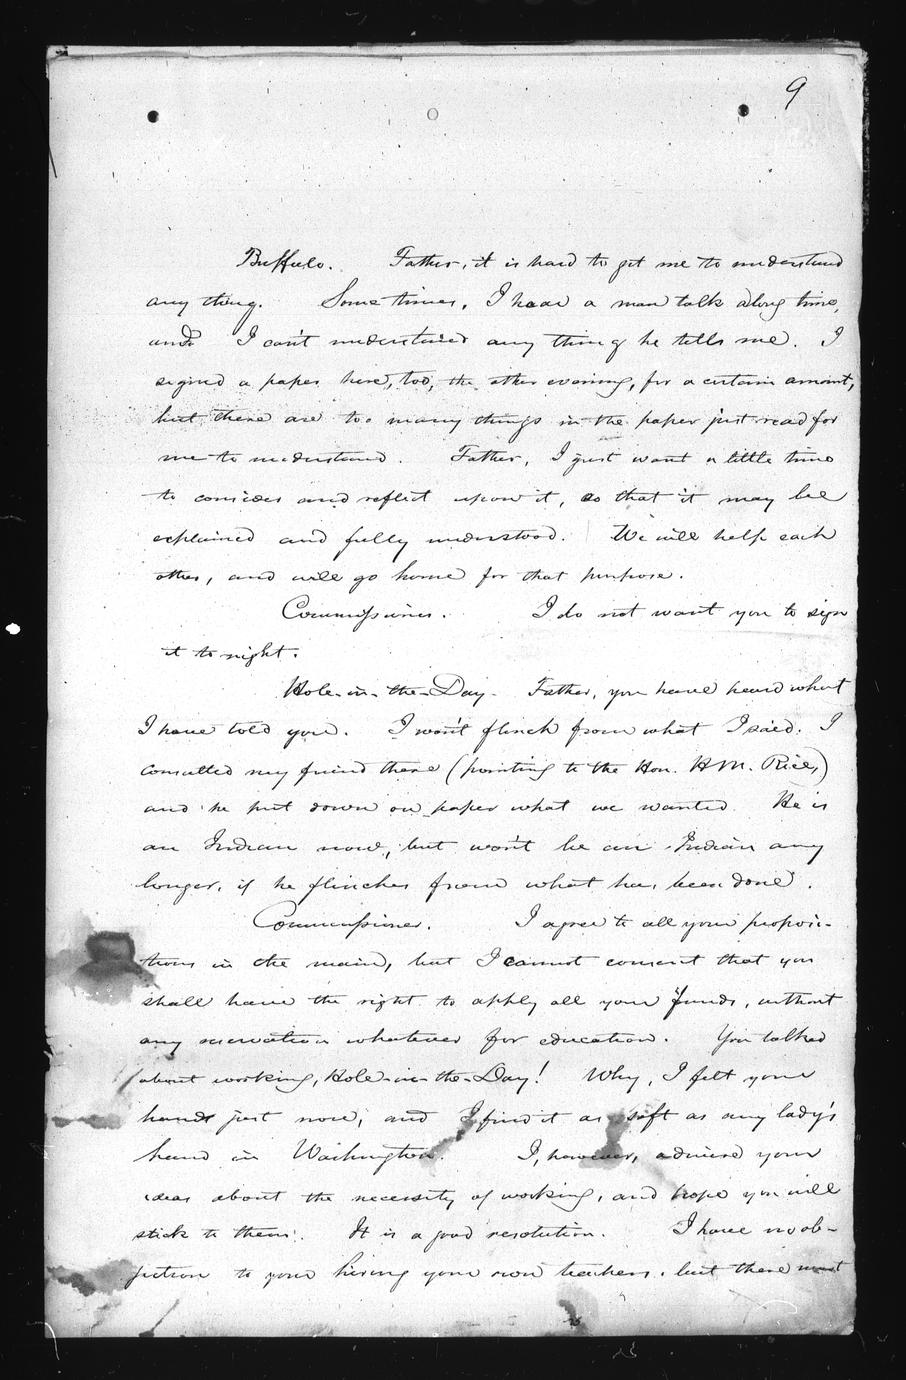 9
Buffalo. Father, it is hard to get me to understand
any thing. Some times, I hear a man talk along time,
and I can't understand any thing he tells me. I
signed a paper here, too, the other evening, for a certain amount,
but there are too many things in the paper just read for
me to understand. Father, I just want a little time
to consider and reflect upon it, so that it may be
explained and fully understood. We will help each
other, and will go home for that purpose.
Commissioner. I do not want you to sign
it to night.
Hole-in-the-Day. Father, you have heard what
I have told you. I won't flinch from what I said. I
consulted my friend there (pointing to the Hon. H.M. Rice,)
and he put down on paper what we wanted. He is
an Indian now, but won't be an Indian any
longer, if he flinches from what has been done.
Commissioner. I agree to all your proposi-
tions in the main, but I cannot consent that you
shall have the right to apply all your funds, without
any reservation whatever for education. You talked
about working, Hole-in-the-Day! Why, I felt your
hands just now, and I find it as soft as any lady's
hand in Washington. I, however, admired your
ideas about the necessity of working, and hope you will
stick to them. It is a good resolution. I have no ob-
jection to your hiring your own teachers, but there must